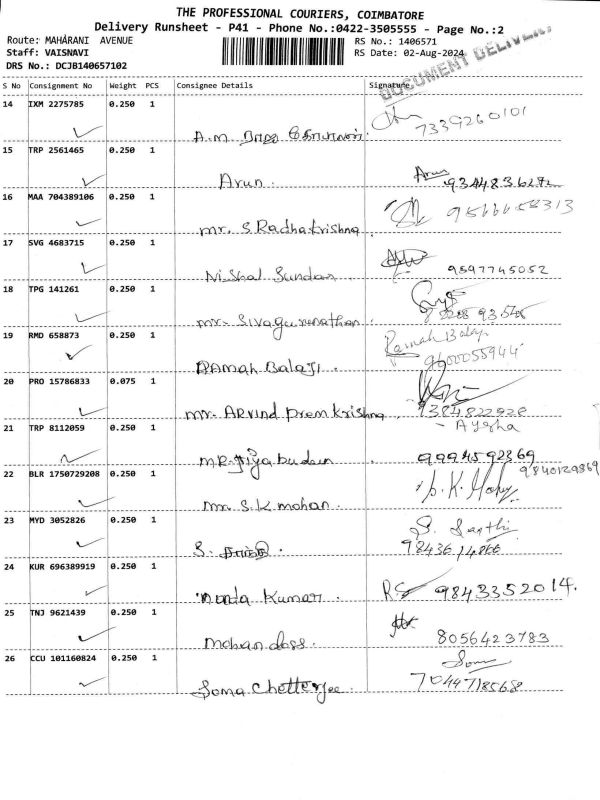 THE PROFESSIONAL COURIERS, COIMBATORE
Delivery Runsheet - P41 - Phone No.:0422-3505555 - Page No.:2
Route: MAHARANI AVENUE RS No.: 1406571
Staff: VAISNAVI RS Date: 02-Aug-2024
DRS No.: DCJB140657102
DOCUMENT DELIVERY
S No Consignment No Weight PCS Consignee Details Signature
14 IXM 2275785 0.250 1
A.M. 7339260101
15 TRP 2561465 0.250 1
Arun. Arun
16 MAA 704389106 0.250 1
mr. S Radhakrishna
17 SVG 4683715 0.250 1
Nishal Sundar 9597745052
18 TPG 141261 0.250 1
mr. Sivagurunathan
19 RMD 658873 0.250 1 Ramah Balaji
RAMAH BALAJI. 9600055944
20 PRO 15786833 0.075 1
mr. ARvind Prem krishna. 9384822928
- Aysha
21 TRP 8112059 0.250 1
9994592869
22 BLR 1750729208 0.250 1 9840129869
mr. S.K. mohan.
23 MYD 3052826 0.250 1 S. Santhi
S.
24 KUR 696389919 0.250 1
nanda Kumar. RS 9843352014.
25 TNJ 9621439 0.250 1
mohan doss. 8056423783
26 CCU 101160824 0.250 1 Soma
Soma Chetterjee. 7044718568